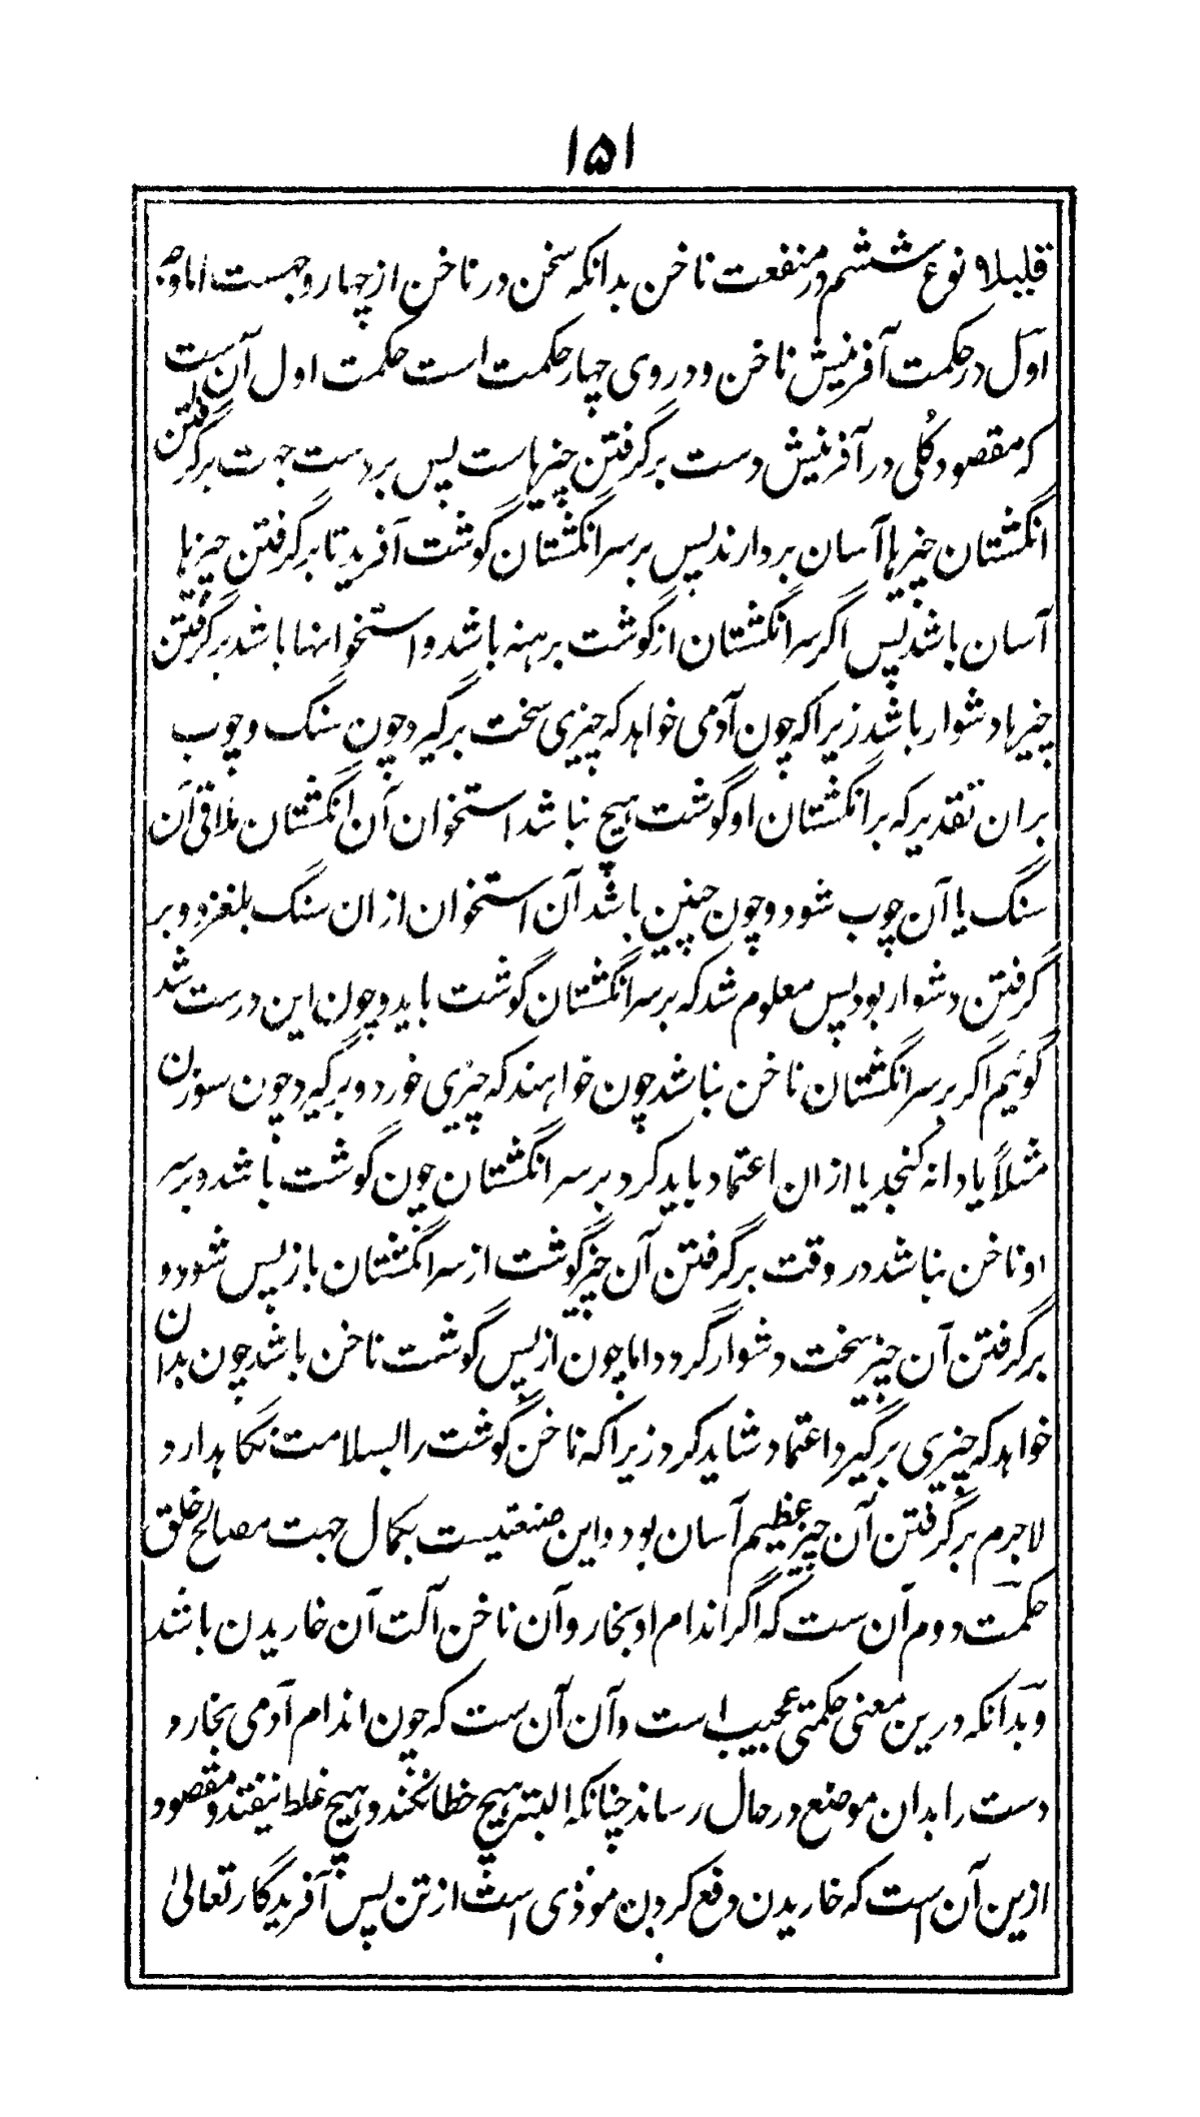 ۱۵۱
قلیلاه نوع ششم در منفعت ناخن بدانکه سخن در ناخن از چهار وجهست اما وجه
اول در حکمت آفرینش ناخن و در وی چهار حکمت است حکمت اول آن ست
که مقصود کلی در آفرینش دست برگرفتن چیزهاست پس بر دست جهت برگرفتن
انگشتان چیزها آسان بردارند پس بر سر انگشتان گوشت آفرید تا برگرفتن چیزها
آسان باشد پس اگر سر انگشتان از گوشت برهنه باشد و استخوانها باشد برگرفتن
چیزها دشوار باشد زیرا که چون آدمی خواهد که چیزی سخت برگیرد چون سنگ و چوب
بران تقدیر که بر انگشتان او گوشت هیچ نباشد استخوان آن انگشتان ملاقی آن
سنگ یا آن چوب شود و چون چنین باشد آن استخوان ازان سنگ بلغزد و بر
گرفتن دشوار بود پس معلوم شد که بر سر انگشتان گوشت باید و چون این درست شد
گوئیم اگر بر سر انگشتان ناخن نباشد چون خواهند که چیزی خورد و برگیرد چون سوزن
مثلاً یا دانه کنجد یا ازان اعتماد باید کرد بر سر انگشتان چون گوشت باشد و بر سر
او ناخن نباشد در وقت برگرفتن آن چیز گوشت از سر انگشتان باز پس شود و
برگرفتن آن چیز سخت دشوار گردد اما چون از پس گوشت ناخن باشد چون بدان
خواهد که چیزی برگیرد اعتماد شاید کرد زیرا که ناخن گوشت را بسلامت نگاهدارد
لاجرم برگرفتن آن چیز عظیم آسان بود و این صنعتیست بکمال جهت مصالح خلق
حکمت دوم آن ست که اگر اندام او بخارد آن ناخن آلت آن خاریدن باشد
و بدانکه درین معنی حکمتی عجیب است و آن آن ست که چون اندام آدمی بخارد
دست را بدان موضع در حال رساند چنانکه البته هیچ خطا نکند و هیچ غلط نیفتد و مقصود
ازین آن است که خاریدن دفع کردن موذی است از تن پس آفریدگار تعالیٰ